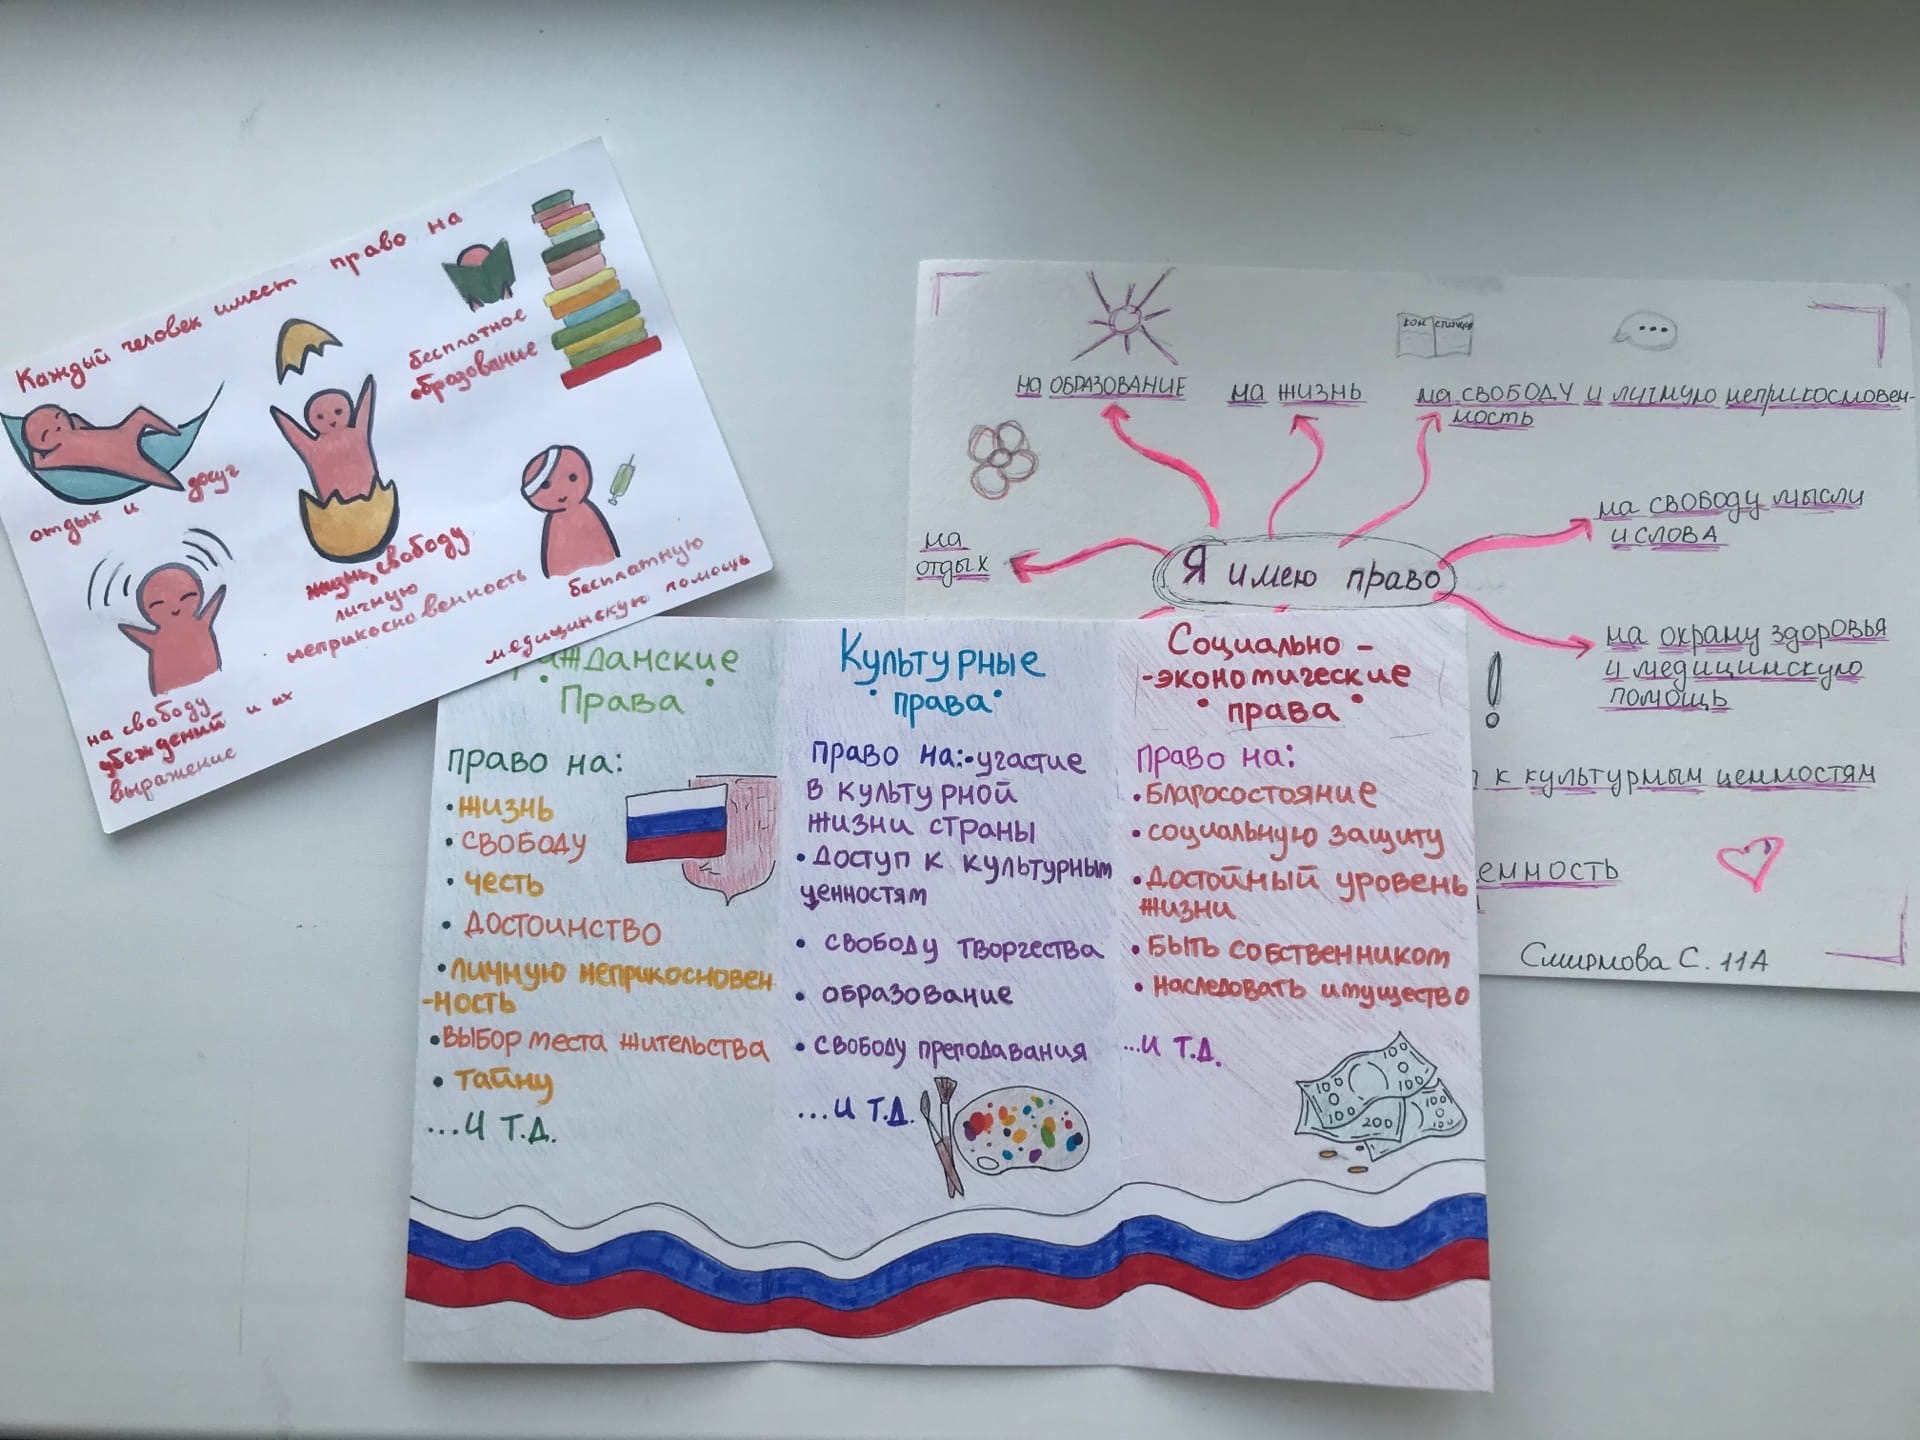 Каждый человек имеет право на
отдых и досуг
жизнь, свободу
личную
неприкосновенность
бесплатное
образование
бесплатную
медицинскую помощь
на свободу
убеждений и их
выражение
на ОБРАЗОВАНИЕ
на жизнь
на свободу и личную неприкосновен-
ность
на
отдых
Я имею право
на свободу мысли
и слова
на охрану здоровья
и медицинскую
помощь
!
к культурным ценностям
енность
Смирнова С. 11А
жданские
Права
право на:
• жизнь
• свободу
• честь
• достоинство
• личную неприкосновен
-ность
• выбор места жительства
• тайну
...и т.д.
Культурные
права
право на: • участие
в культурной
жизни страны
• доступ к культурным
ценностям
• свободу творчества
• образование
• свободу преподавания
...и т.д.
Социально -
-экономические
права
право на:
• благосостояние
• социальную защиту
• достойный уровень
жизни
• быть собственником
• наследовать имущество
...и т.д.
100
100
100
200
100
100